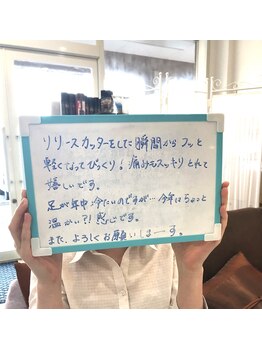 リリースカッターをした瞬間から フッと
軽くなってびっくり! 痛みもスッキリとれて
嬉しいです。
足が年中冷たいのですが… 今年はちょっと
温かい?! 感じです。
また、よろしくお願いしまーす。